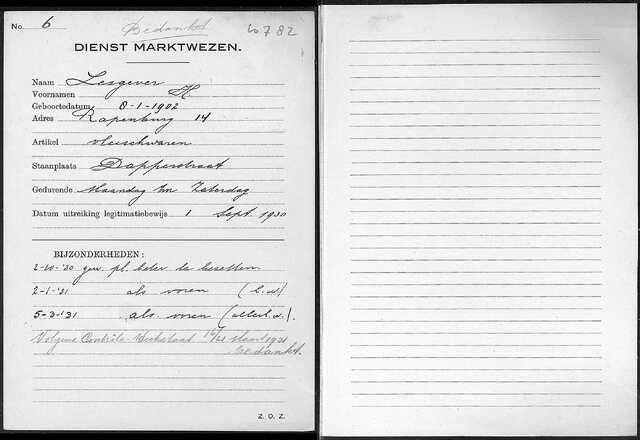 No. 6 Bedankt 10782
DIENST MARKTWEZEN.
Naam Lesgever
Voornamen H
Geboortedatum 8-1-1902
Adres Rapenburg 14
Artikel vleeschwaren
Staanplaats Dapperstraat
Gedurende Maandag t/m Zaterdag
Datum uitreiking legitimatiebewijs 1 Sept. 1930
BIJZONDERHEDEN:
2-10-'30 gew. pl. beter te bezetten
2-1-'31 als voren
5-3-'31 als voren
Volgens Contrôle Maart 1931
bedankt.
Z. O. Z.